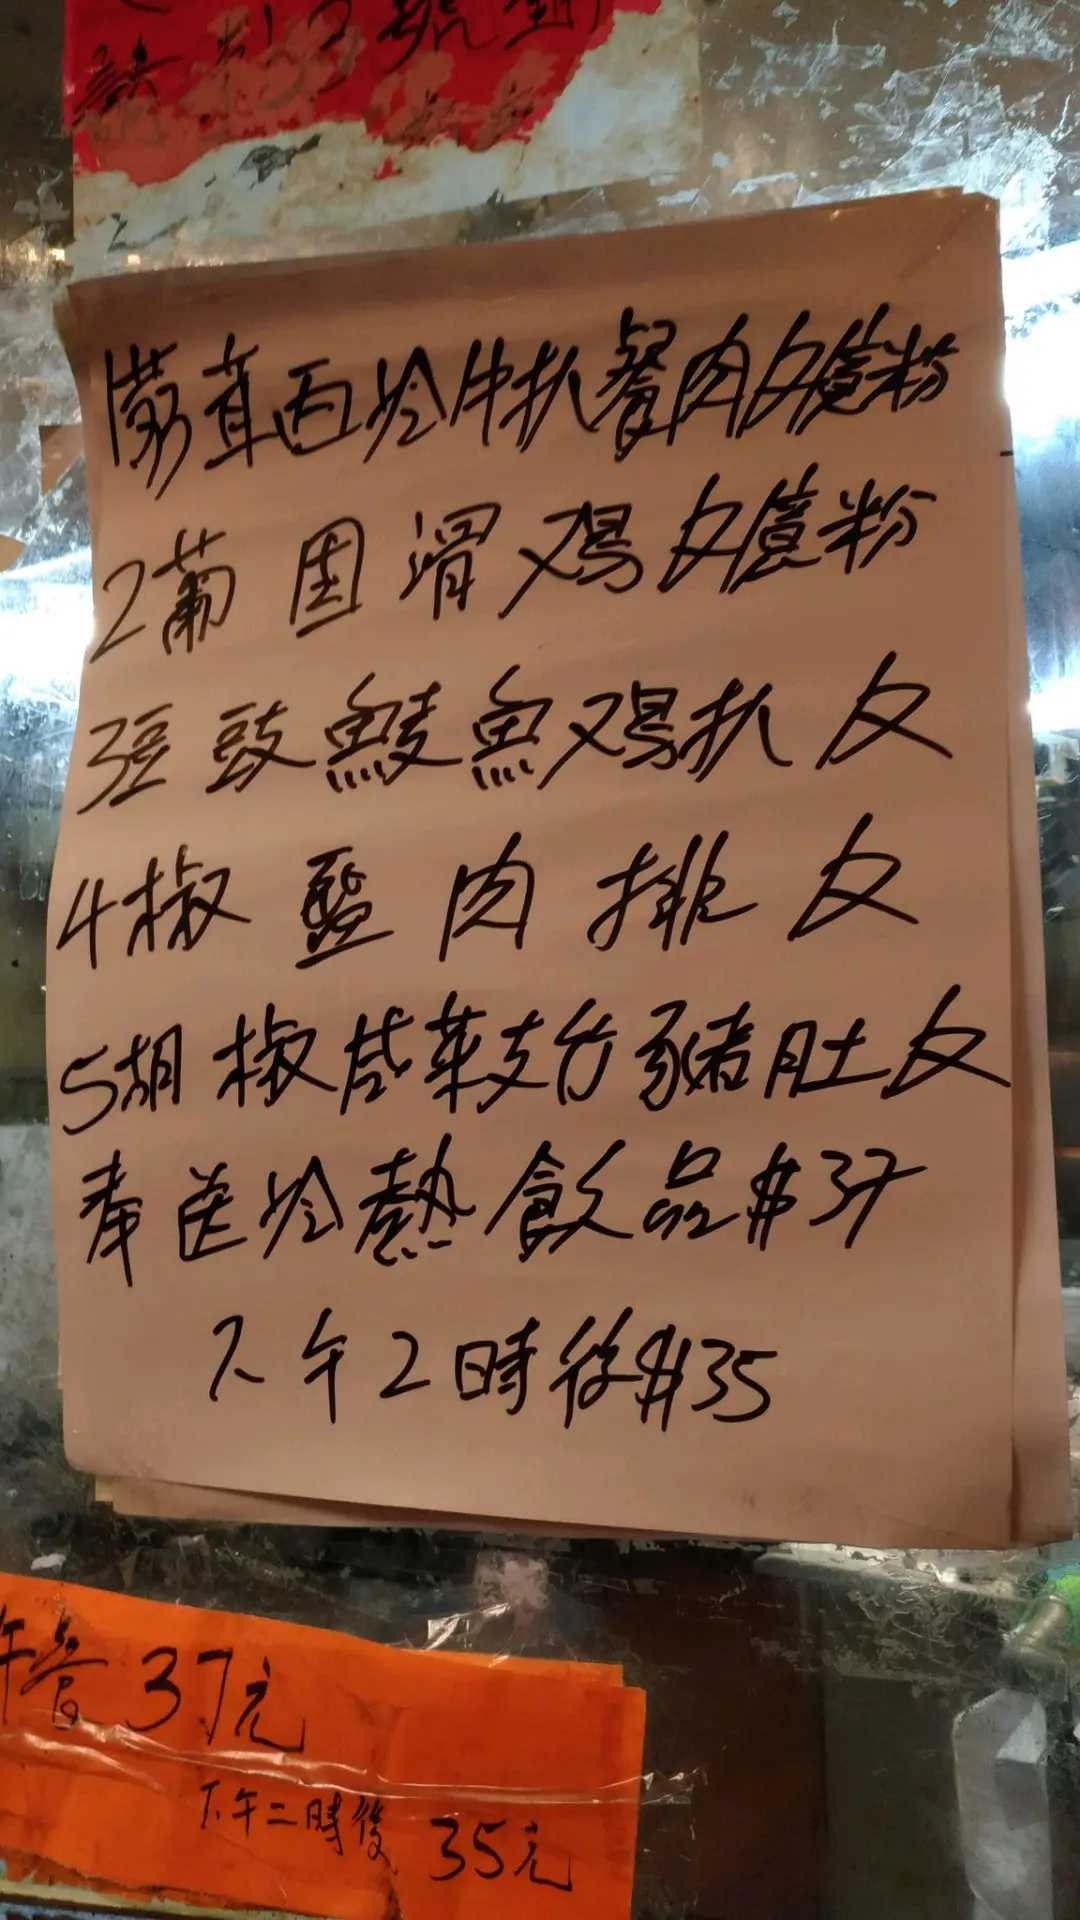 1蒜茸西冷牛扒餐肉反/意粉
2葡国滑鸡反/意粉
3豆豉鯪魚鸡扒反
4椒盬肉排反
5胡椒咸菜支竹豬肚反
奉送冷熱飲品$37
下午2時後$35
午餐37元
下午二時後35元